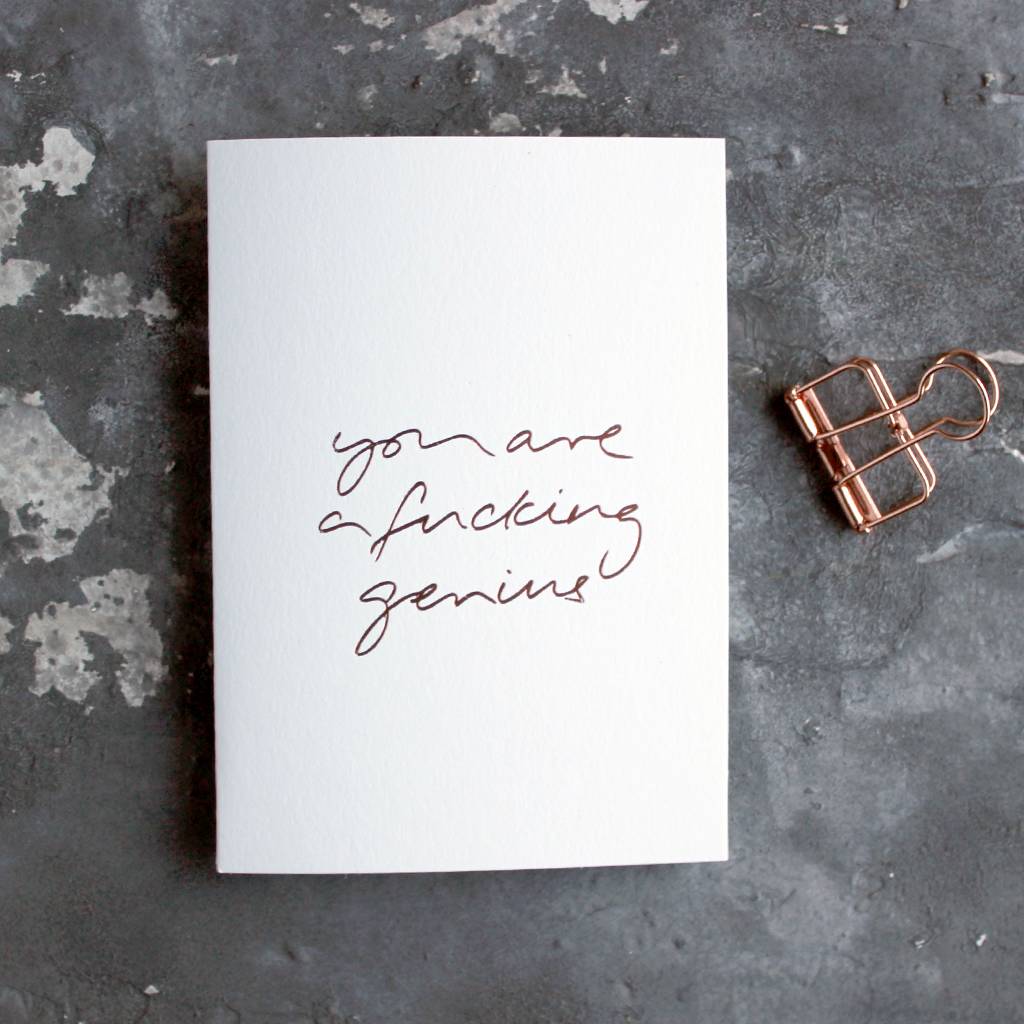 you are
a fucking
genius